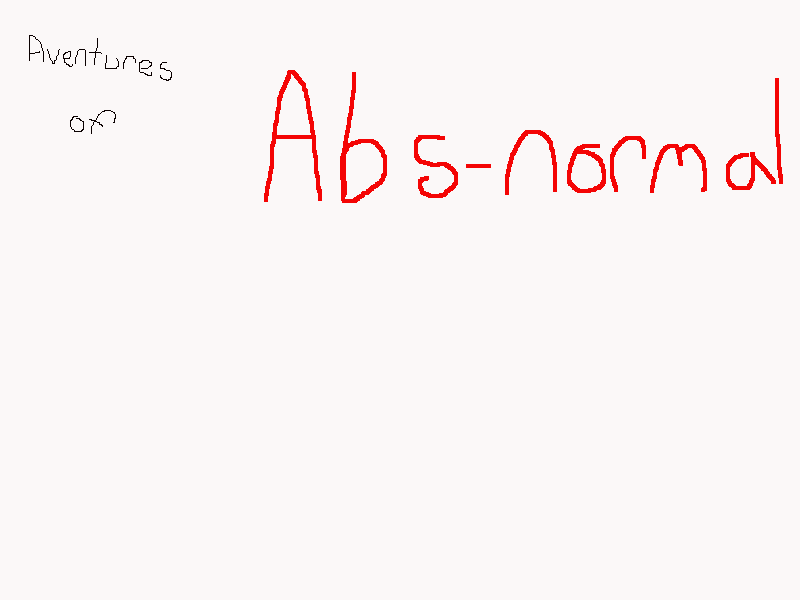 Aventures
of
Abs-normal